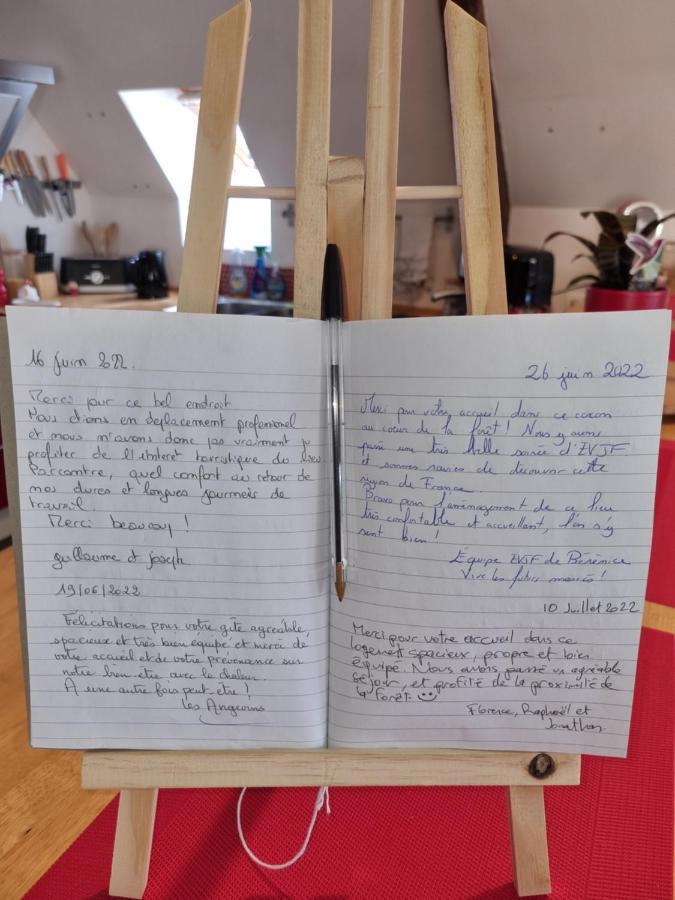 16 juin 2022.
Merci pour ce bel endroit
Nous étions en deplacement professionel
et nous n'avons donc pas vraiment pu
profiter de l'interet touristique du lieu
Par contre, quel confort au retour de
nos dures et longues journeés de
travail.
Merci beaucoup !
guillaume et joseph
19/06/2022
Félicitations pour votre gîte agréable,
spacieux et très bien équipé et merci de
votre accueil et de votre prévenance sur
notre bien être avec la chaleur.
A une autre fois peut être !
Les Angevins
26 juin 2022
Merci pour votre accueil dans ce cocon
au cœur de la forêt ! Nous y avons
passé une très belle soirée d'EVJF
et sommes ravies de découvrir cette
région de France.
Bravo pour l'aménagement de ce lieu
très confortable et accueillant, l'on s'y
sent bien !
Équipe EVJF de Bérénice
Vive les futurs mariés !
10 Juillet 2022
Merci pour votre accueil dans ce
logement spacieux, propre et bien
équipé. Nous avons passé un agréable
séjour, et profité de la proximité de
la forêt. ☺
Florence, Raphaël et
Jonathan.